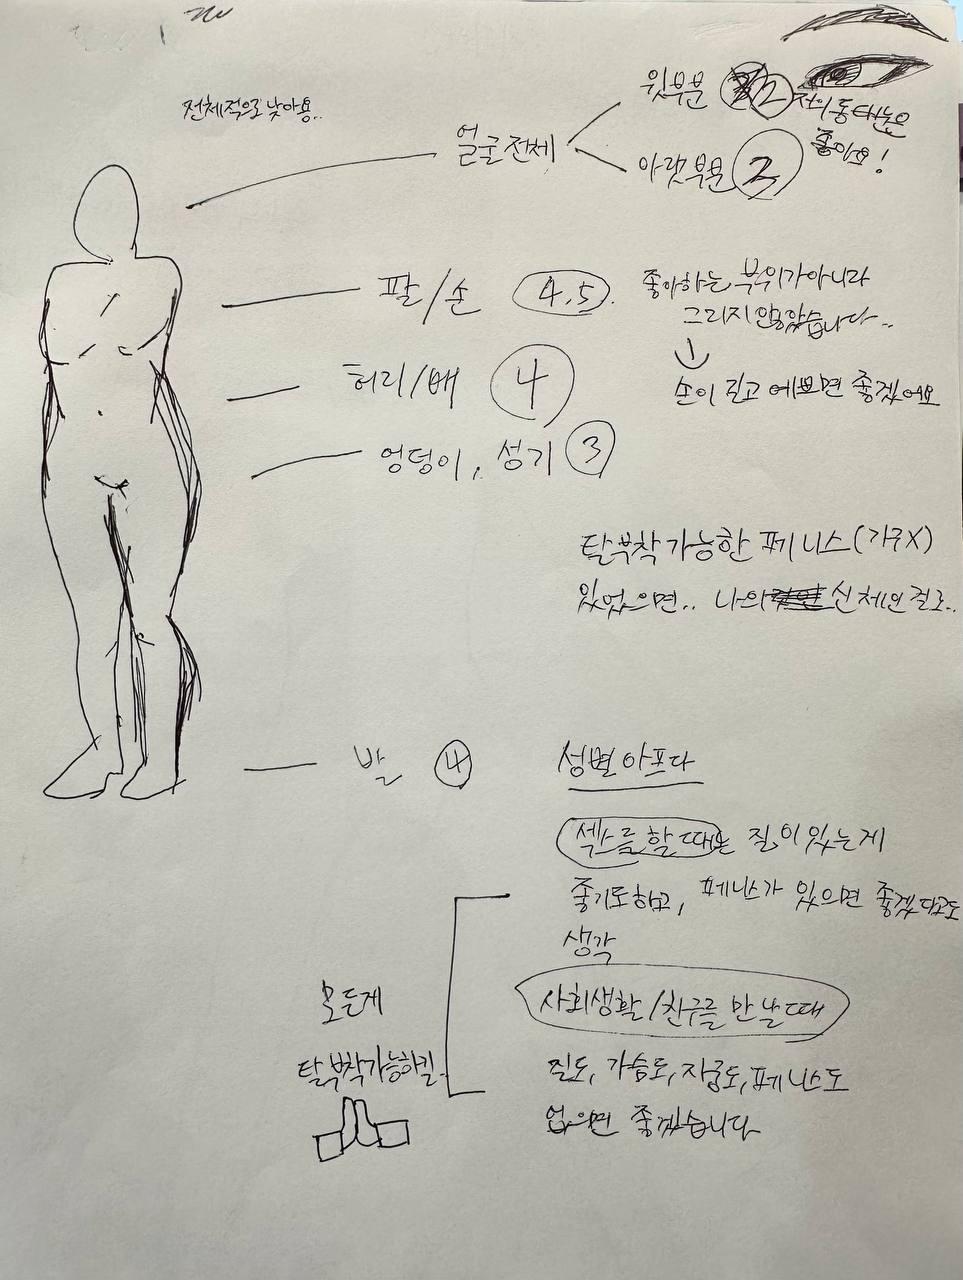 전체적으로 낮아용..
얼굴전체
윗부분 2
저의 동태눈은
좋아요!
아랫부분 2
팔/손 4.5.
좋아하는 부위가아니라
그리지 않았습니다..
손이 길고 예쁘면 좋겠어요
허리/배 4
엉덩이, 성기 3
탈부착가능한 페니스(가구X)
있었으면.. 나의 신체의 걸로..
발 4
성별 아프다
섹스를 할 때는 질이 있는게
좋기도하고, 페니스가 있으면 좋겠다고도
생각
사회생활/친구를 만날때
질도, 가슴도, 자궁도, 페니스도
없으면 좋겠습니다
모든게
탈부착가능하길